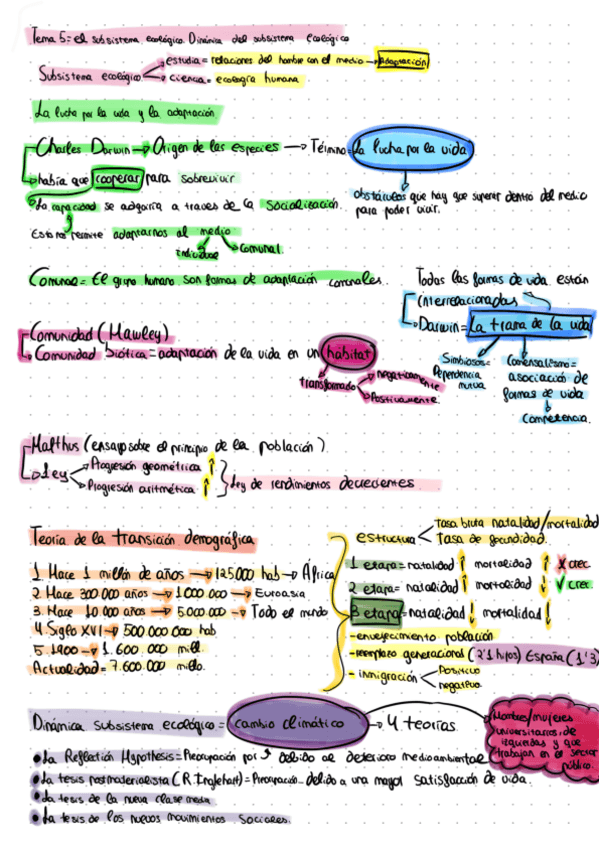 Tema 5= el subsistema ecológico. Dinámica del subsistema ecológico
Subsistema ecológico
estudia= relaciones del hombre con el medio → Adaptación
ciencia= ecología humana
La lucha por la vida y la adaptación
Charles Darwin → Origen de las especies → Término= La lucha por la vida
había que cooperar para sobrevivir
obstáculos que hay que superar dentro del medio
para poder vivir.
La capacidad se adquiría a traves de la socialización.
Esto nos permite adaptarnos al medio
individual
comunal.
Comunal= El grupo humano son formas de adaptación comunales.
Todas las formas de vida están
interrelacionadas
Darwin= La trama de la vida
Simbiosis=
Dependencia
mutua
Comensalismo=
asociación de
formas de vida
Competencia.
Comunidad (Hawley)
Comunidad biótica= adaptación de la vida en un hábitat
transformado
negativamente
Positivamente.
Malthus (ensayo sobre el principio de la población)
Ley
Progresión geométrica ↑
Progresión aritmética ↑
Ley de rendimientos decrecientes
Teoría de la transición demográfica
1. Hace 1 millón de años → 125000 hab → África
2. Hace 300 000 años → 1000 000 → Euroasia
3. Hace 10 000 años → 5.000.000 → Todo el mundo
4. Siglo XVI → 500 000 000 hab
5. 1900 → 1.600.000 mill.
Actualidad= 7.600.000 millo.
estructura
tasa bruta natalidad/mortalidad
tasa de fecundidad.
1 etapa= natalidad ↑ mortalidad ↑ X crec.
2 etapa= natalidad ↑ mortalidad ↓ ✓ crec.
3 etapa= natalidad ↓ mortalidad ↓
- envejecimiento población
- reemplazo generacional (2'1 hijos) España (1'3)
- inmigración
Positivo
negativo.
Dinámica subsistema ecológico= cambio climático → 4 teorías
Hombres/mujeres
universitarios, de
izquierdas y que
trabajan en el sector
público.
La Reflection Hypothesis= Preocupación por ↑ debido al deterioro medioambiental
La tesis postmaterialista (R. Inglehart)= Preocupación debido a una mayor satisfacción de vida.
La tesis de la nueva clase media
La tesis de los nuevos movimientos sociales.